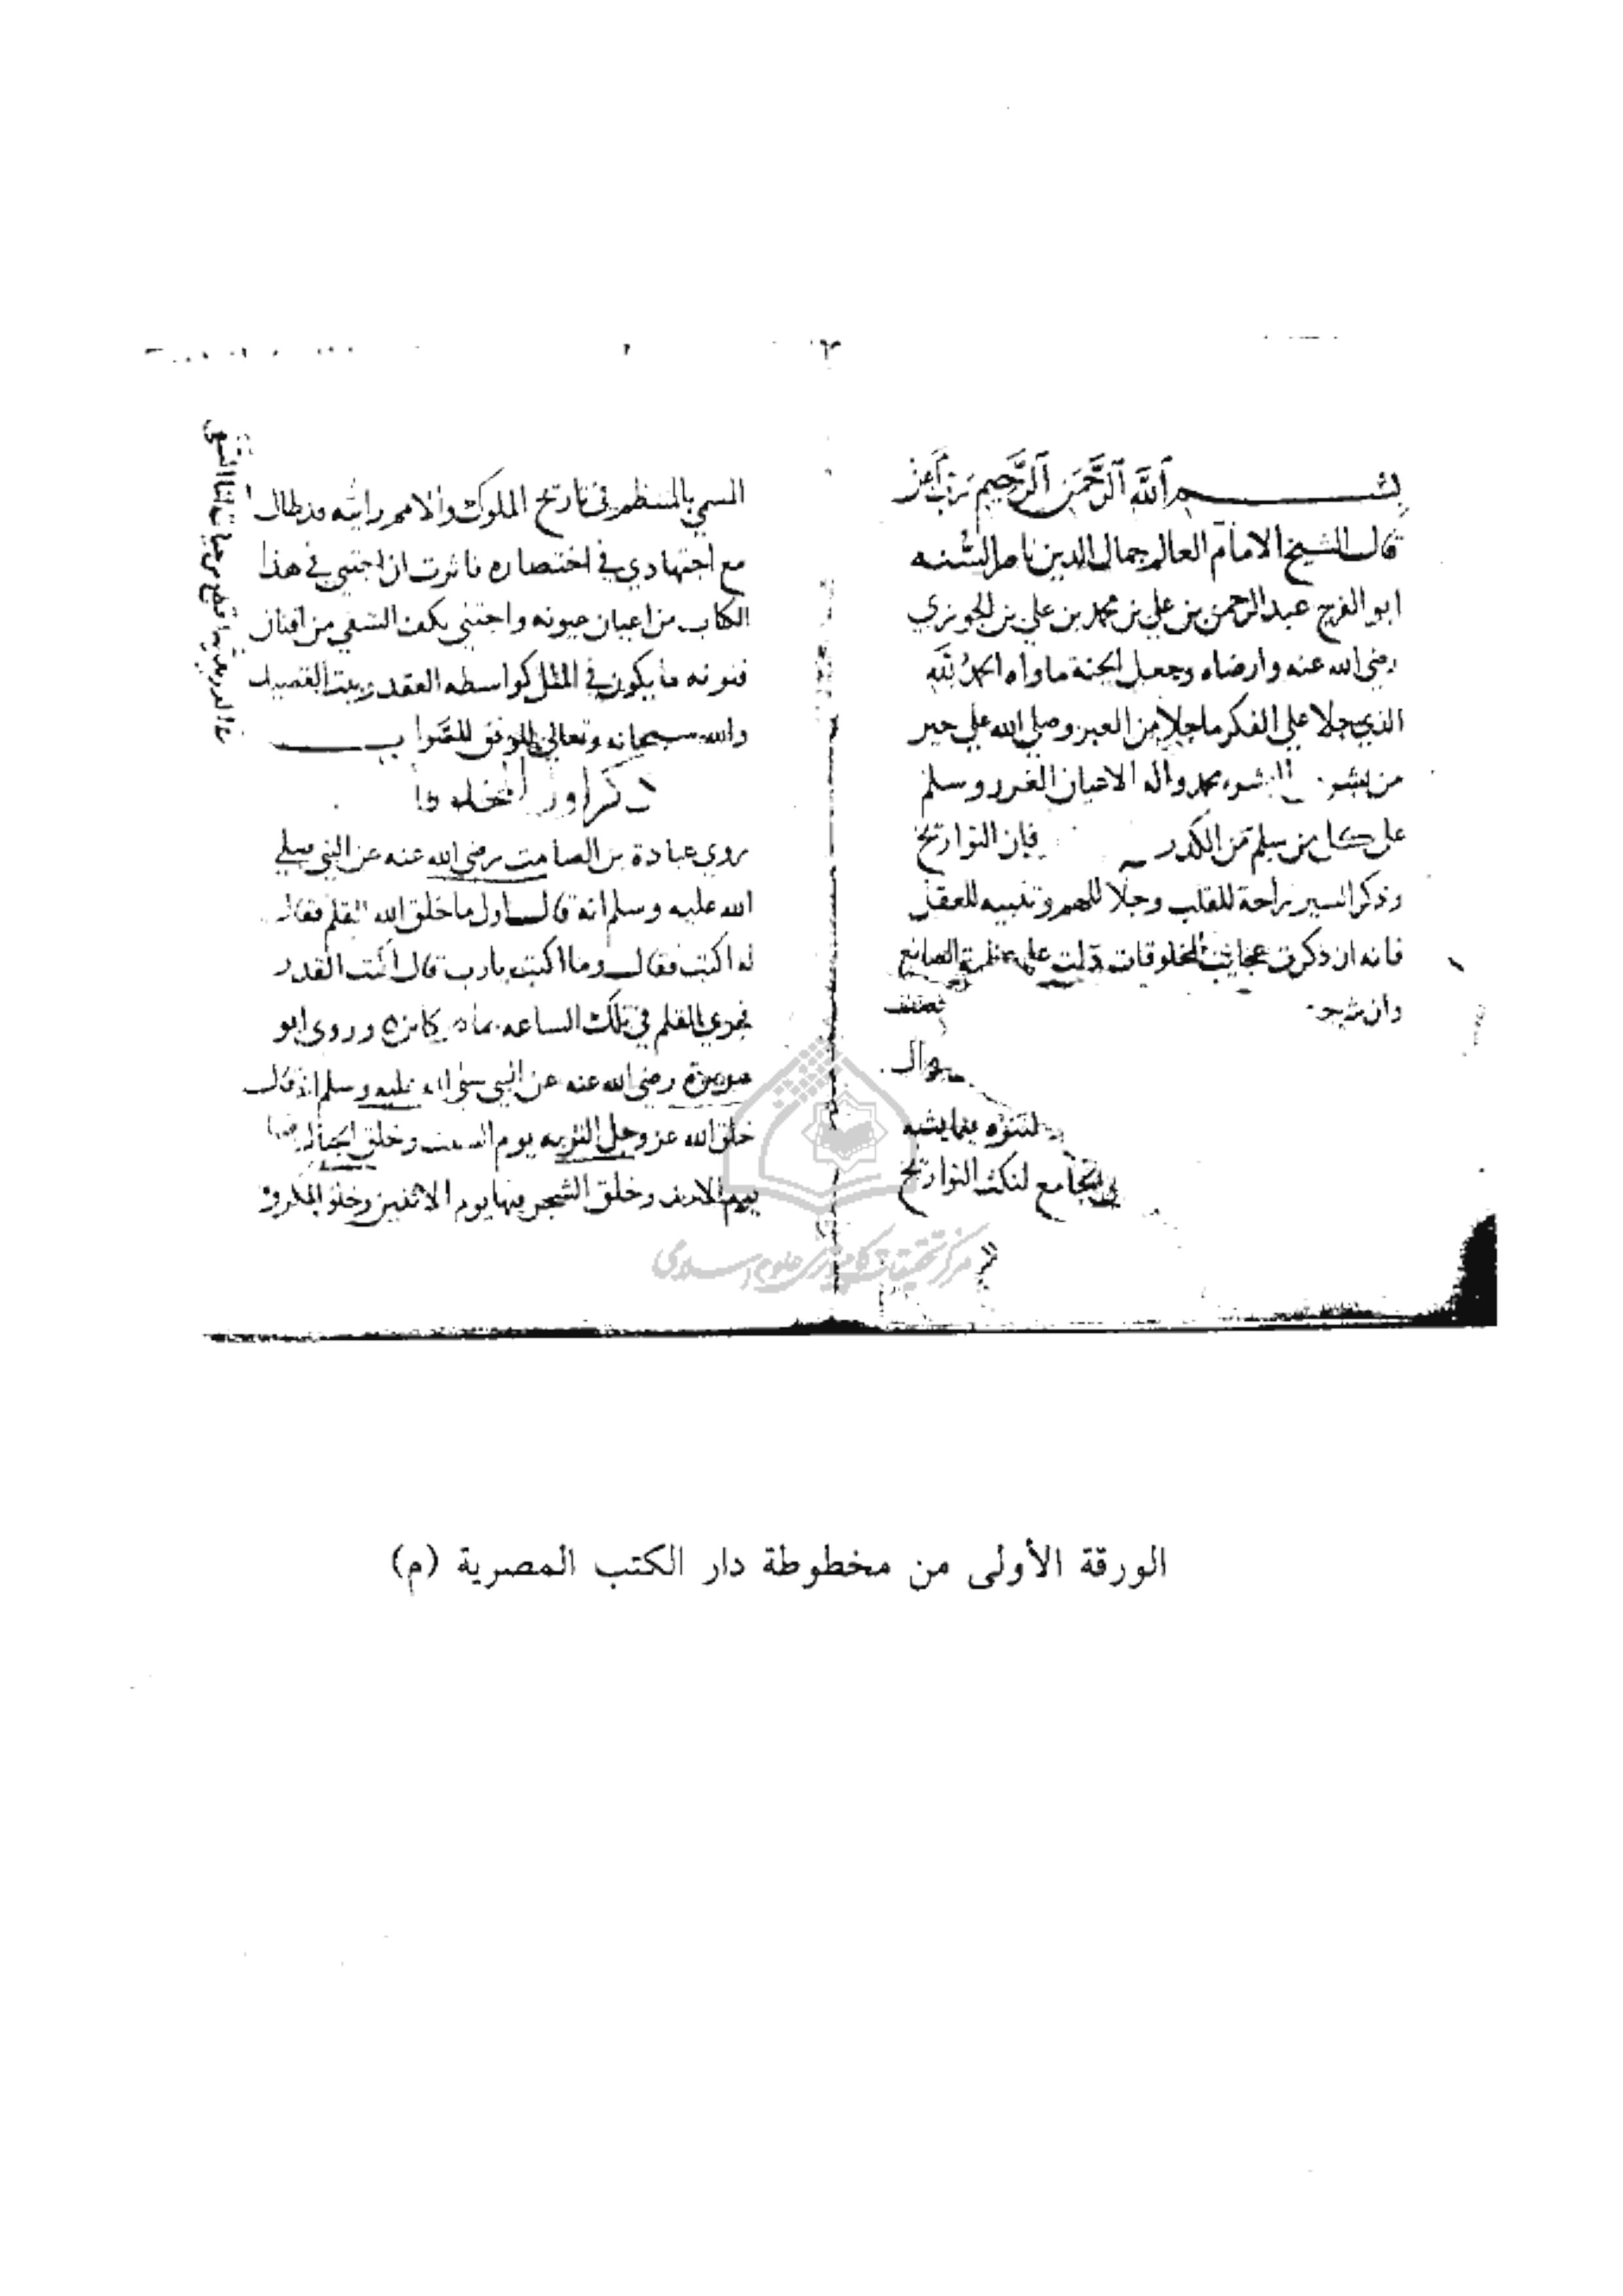 بسم الله الرحمن الرحيم رب أعز
قال الشيخ الامام العالم جمال الدين ناصر السنه
ابو الفرج عبد الرحمن بن علي بن محمد بن علي بن الجوزي
رضي الله عنه وارضاه وجعل الجنة ماواه الحمد لله
الذي جلا علي الفكر ما جلا من العبر وصلي الله علي خير
من بشر محمد واله الاعيان الغرر وسلم
علي كل من سلم من الكدر فان التواريخ
وذكر السير راحة للقلب وجلا للهم وتنبيه للعقل
فانه ان ذكرت عجايب المخلوقات دلت علي عظمة الصانع
وان
للتنزه بما يشبه
الجامع لنكت التواريخ
المسمي بالمنتظم في تاريخ الملوك والامم رايته قد طال
مع اجتهادي في اختصاره فاثرت ان اجتني في هذا
الكتاب من اعيان عيونه واجتني بكف من افنان
فنونه ما يكون في المثل كواسطه العقد وبيت القصيد
والله سبحانه وتعالي الموفق للصواب
ذكر اول المخلوقات
روي عبادة بن الصامت رضي الله عنه عن النبي صلي
الله عليه وسلم انه قال اول ما خلق الله القلم فقال
له اكتب فقال وما اكتب يا رب قال اكتب القدر
فجري القلم في تلك الساعه بما كاين وروي ابو
هريرة رضي الله عنه عن النبي صلى الله عليه وسلم انه قال
خلق الله عز وجل التربه يوم السبت وخلق الجبال فيها
يوم الاحد وخلق الشجر فيها يوم الاثنين وخلق المكروه
مركز تحقيقات كامپيوترى علوم اسلامى
الورقة الأولى من مخطوطة دار الكتب المصرية (م)